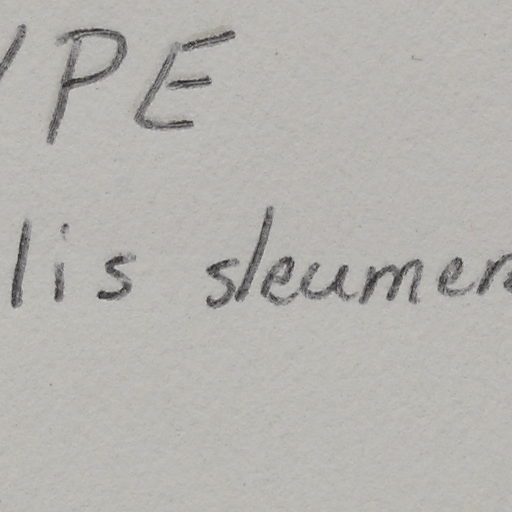 YPE
lis sleumer